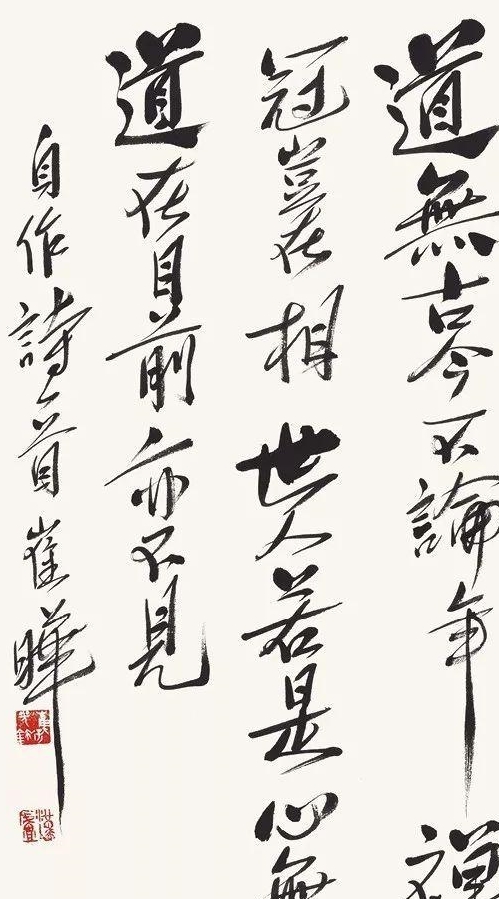 道無古今不論年禪
冠豈在相世人若是心無
道在目前亦不見
自作詩一首崔曄